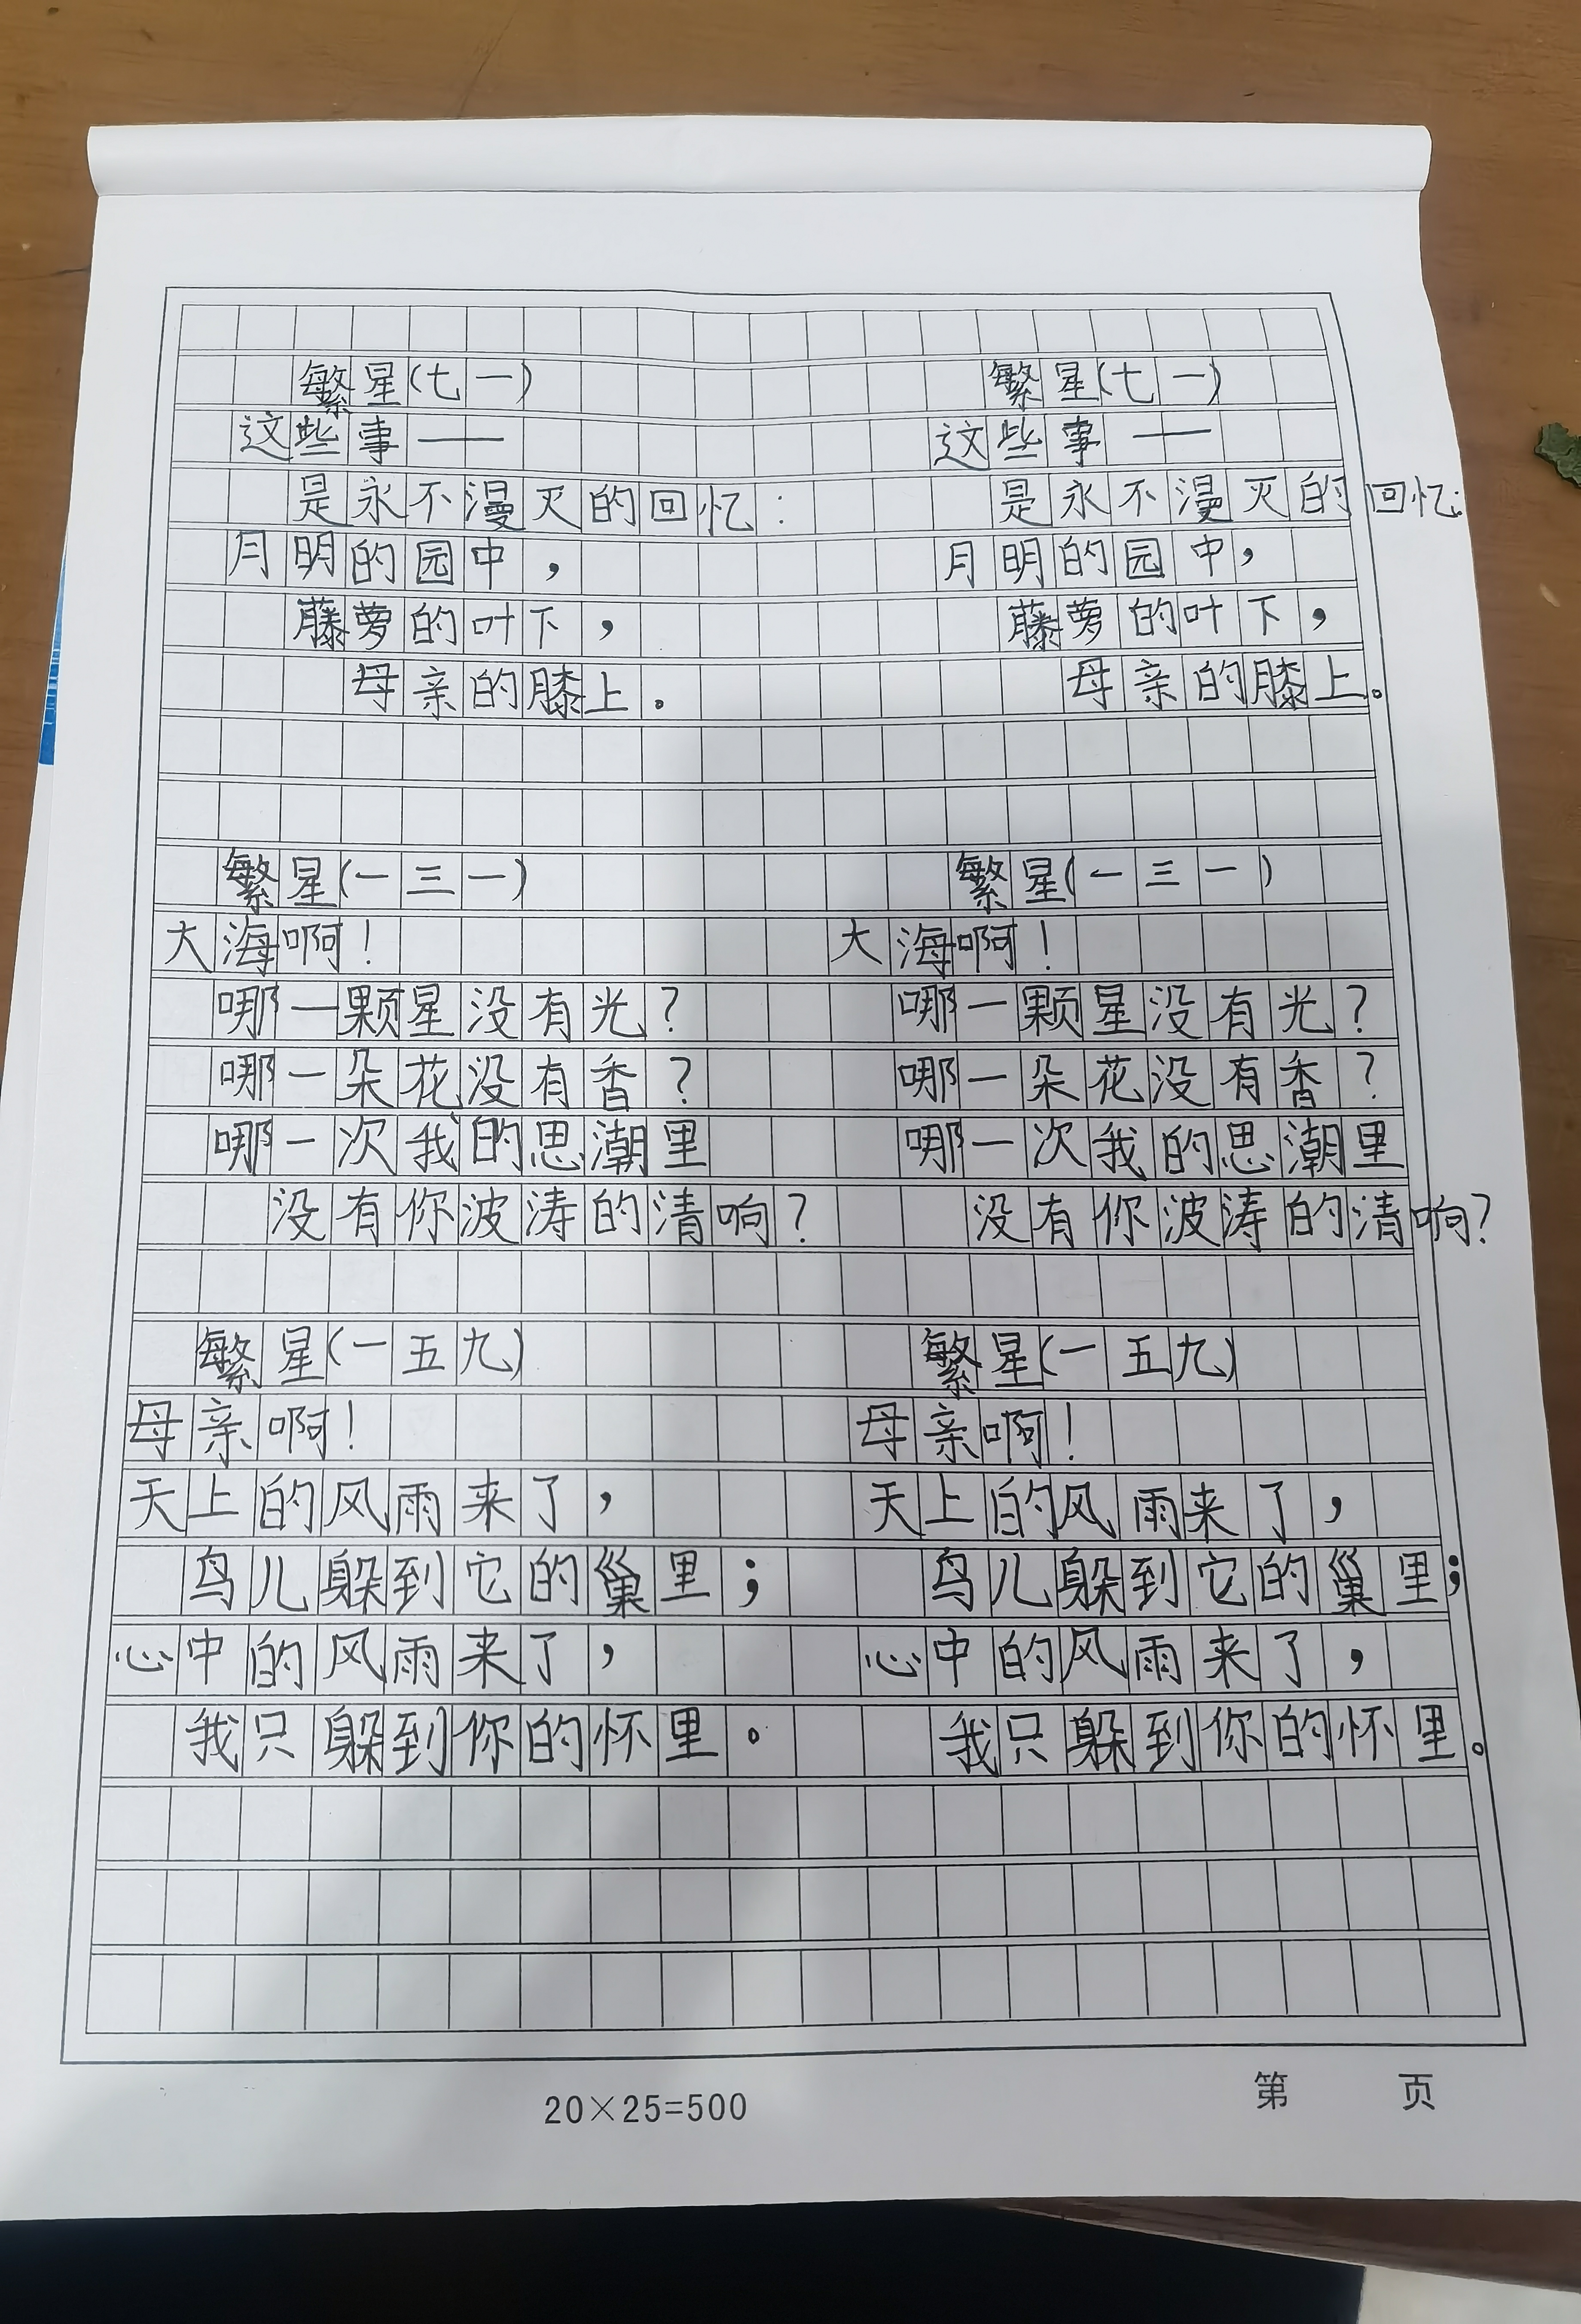 繁星(七一) 繁星(七一)
这些事—— 这些事——
是永不漫灭的回忆: 是永不漫灭的回忆:
月明的园中, 月明的园中,
藤萝的叶下, 藤萝的叶下,
母亲的膝上。 母亲的膝上。
繁星(一三一) 繁星(一三一)
大海啊! 大海啊!
哪一颗星没有光? 哪一颗星没有光?
哪一朵花没有香? 哪一朵花没有香?
哪一次我的思潮里 哪一次我的思潮里
没有你波涛的清响? 没有你波涛的清响?
繁星(一五九) 繁星(一五九)
母亲啊! 母亲啊!
天上的风雨来了, 天上的风雨来了,
鸟儿躲到它的巢里; 鸟儿躲到它的巢里;
心中的风雨来了, 心中的风雨来了,
我只躲到你的怀里。 我只躲到你的怀里。
20×25=500 第 页